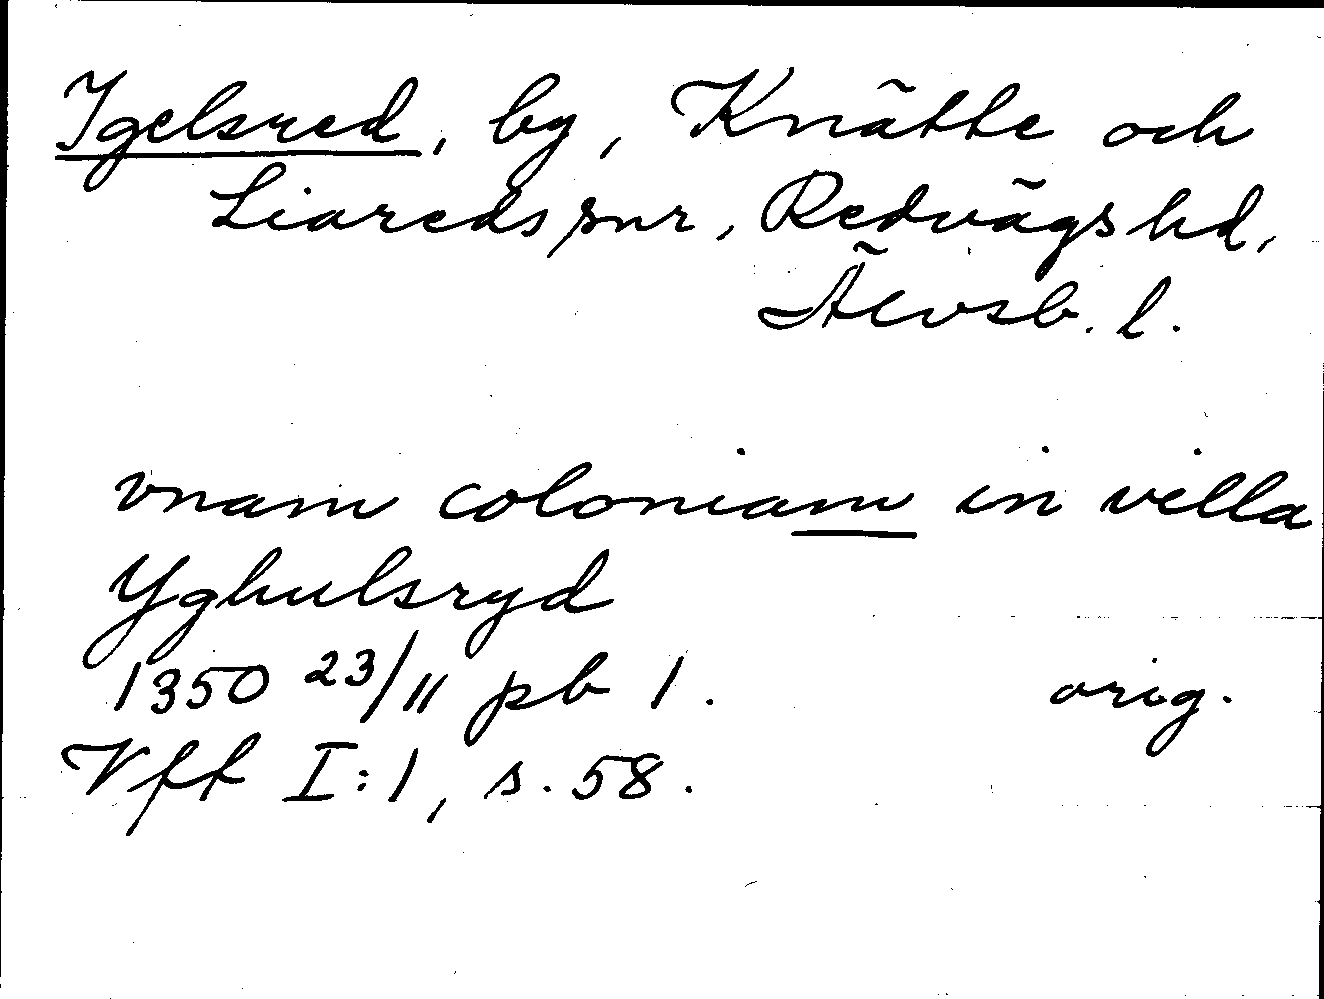 Igelsred, by, Knätte och
Liareds snr, Redvägs hd,
Älvsb. l.
vnam coloniam in villa
Yghulsryd
1350 23/11 pb 1. orig.
Vff I:1, s. 58.